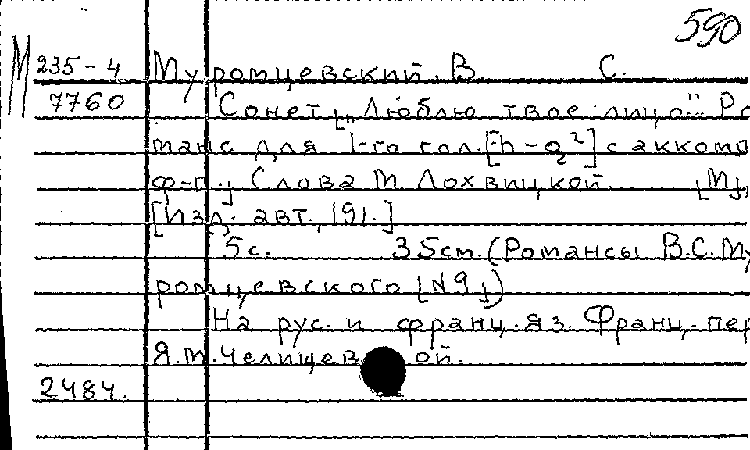 590
М 235-4 Муромцевский, В. С.
7760 Сонет „Люблю твое лицо". Ро
манс для 1-го гол. [h-g²] с аккомп
ф-п., Слова М. Лохвицкой. [М.,
[Изд. авт., 191.]
5 с. 35 см. (Романсы В.С. Му
ромцевского [№9])
На рус. и франц. яз. Франц. пер
Я.М. Челищевой.
2484.